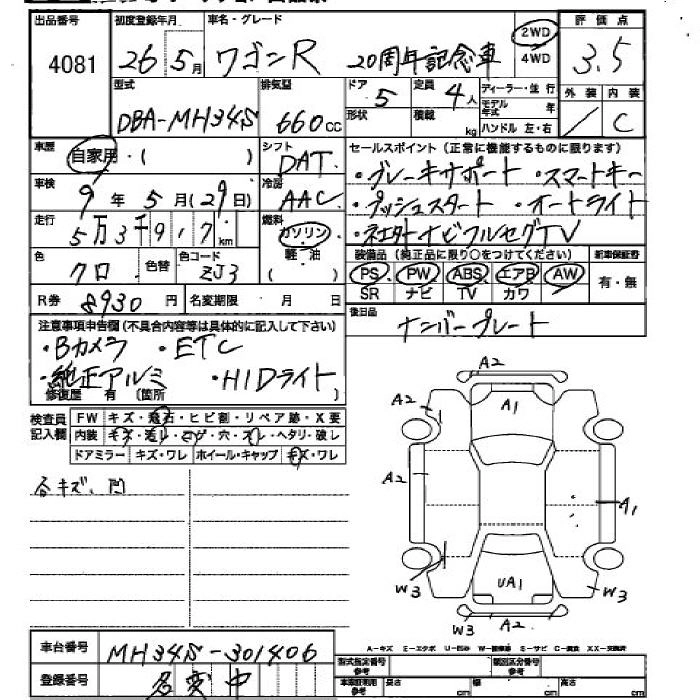 出品番号 初度登録年月 車名・グレード 2WD 評価点
4081 26 5月 ワゴンR 20周年記念車 4WD 3.5
型式 排気量 ドア 定員 ディーラー・並行 外装 内装
DBA-MH34S 660cc 5 4人 モデル年式 年 / C
形状 積載 kg ハンドル 左・右
車歴 自家用・( ) シフト DAT セールスポイント(正常に機能するものに限ります)
車検 9年5月(29日) 冷房 AAC ・ブレーキサポート ・スマートキー
・プッシュスタート ・オートライト
走行 5万3千9 17km 燃料 ガソリン 軽油 ( ) ・ネエター ナビフルセグTV
色 クロ 色替 色コード ZJ3 装備品(純正品に限り○をつけてください) 新車保証書
PS PW ABS エアB AW 有・無
R券 8930円 名変期限 月 日 SR ナビ TV カワ
注意事項申告欄(不具合内容等は具体的に記入して下さい) 後日品 ナンバープレート
・Bカメラ ・ETC
・純正アルミ ・HIDライト
修復歴 有 (箇所 )
検査員記入欄 FW キズ・飛石・ヒビ割・リペア跡・X要
内装 キズ・汚レ・コゲ・穴・スレ・ヘタリ・破レ
ドアミラー キズ・ワレ ホイール・キャップ キズ・ワレ
各キズ、凹
A2
A2 A1
A2 A1
W3 UA1 W3
W3 A2
A-キズ E-エクボ U-凹み W-補修跡 S-サビ C-腐食 XX-交換済
車台番号 MH34S-301406 型式指定番号 参考 類別区分番号 参考
登録番号 名変中 車庫証明用 参考 長さ cm 幅 cm 高さ cm